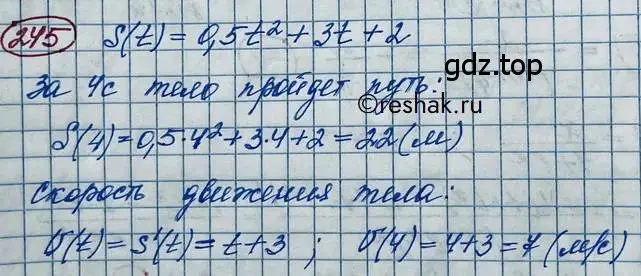 245 S(t) = 0,5t² + 3t + 2
За 4с тело пройдет путь:
gdz.top
©reshak.ru
S(4) = 0,5·4² + 3·4 + 2 = 22 (м)
Скорость движения тела:
υ(t) = S'(t) = t + 3 ; υ(4) = 4 + 3 = 7 (м/с)